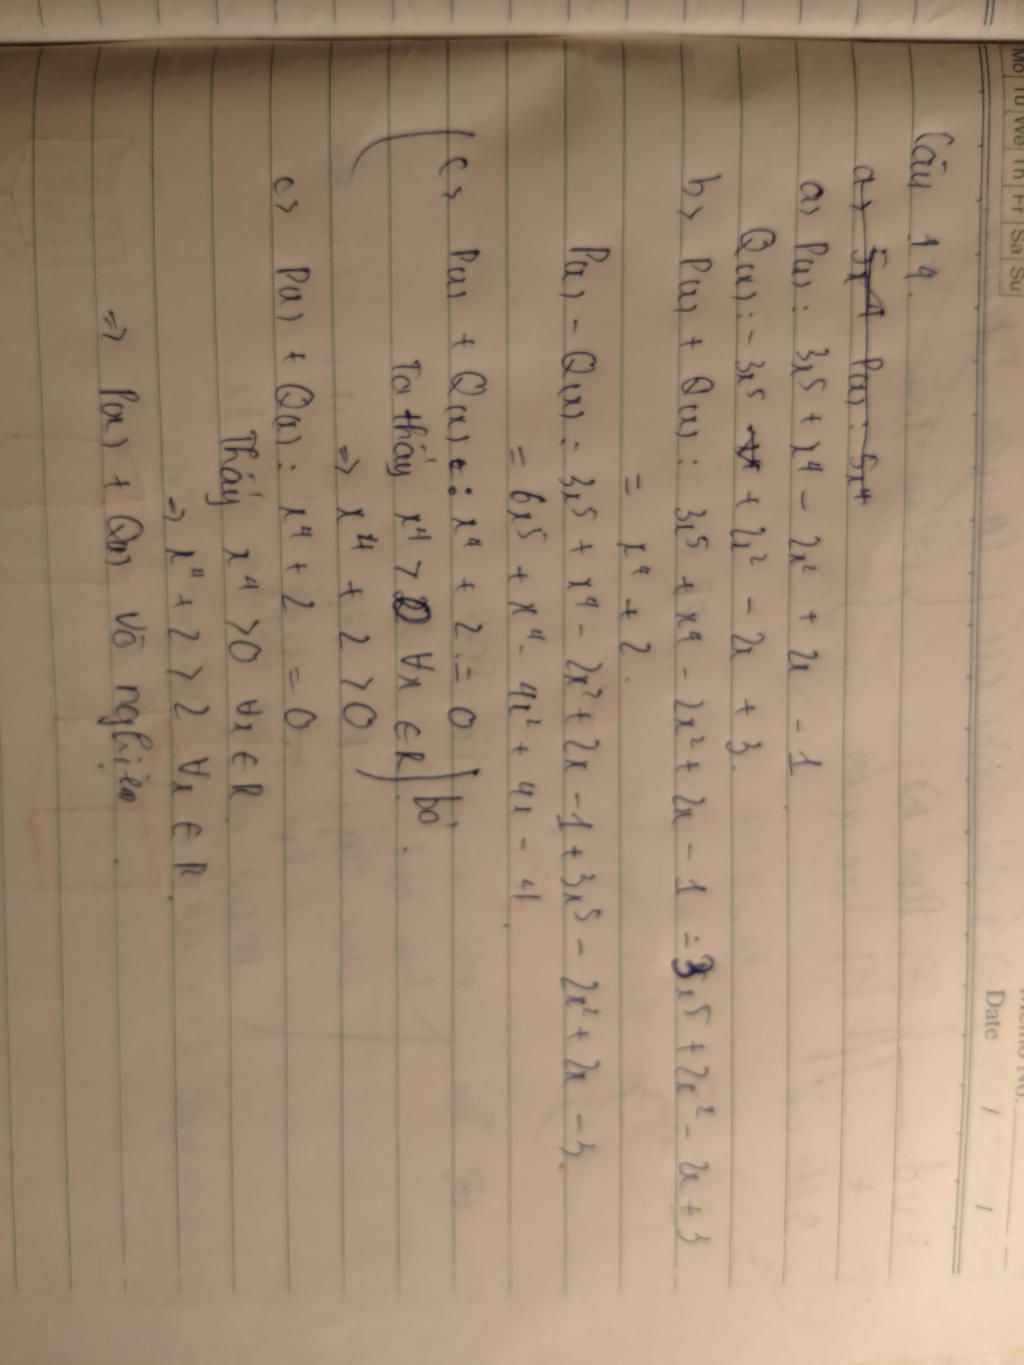 Mo Tu We Th Fr Sa Su
Memo No.
Date / /
Câu 14.
a> 5x4 P(x): 5x⁴
a> P(x): 3x⁵ + x⁴ - 2x² + 2x - 1
Q(x): - 3x⁵ + 2x² - 2x + 3.
b> P(x) + Q(x) : 3x⁵ + x⁴ - 2x² + 2x - 1 - 3x⁵ + 2x² - 2x + 3
= x⁴ + 2.
P(x) - Q(x) : 3x⁵ + x⁴ - 2x² + 2x - 1 + 3x⁵ - 2x² + 2x - 3.
= 6x⁵ + x⁴ - 4x² + 4x - 4.
(c> P(x) + Q(x) : x⁴ + 2 = 0
Ta thấy x⁴ > 0 ∀x ∈ R
=> x⁴ + 2 > 0) bỏ.
c> P(x) + Q(x) : x⁴ + 2 = 0
Thấy x⁴ > 0 ∀x ∈ R.
=> x⁴ + 2 > 2 ∀x ∈ R.
=> P(x) + Q(x) vô nghiệm.